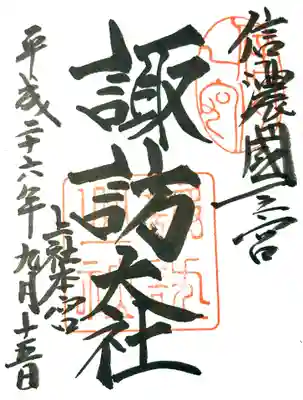 信濃國一之宮
諏訪大社
上社本宮
平成二十六年九月十五日